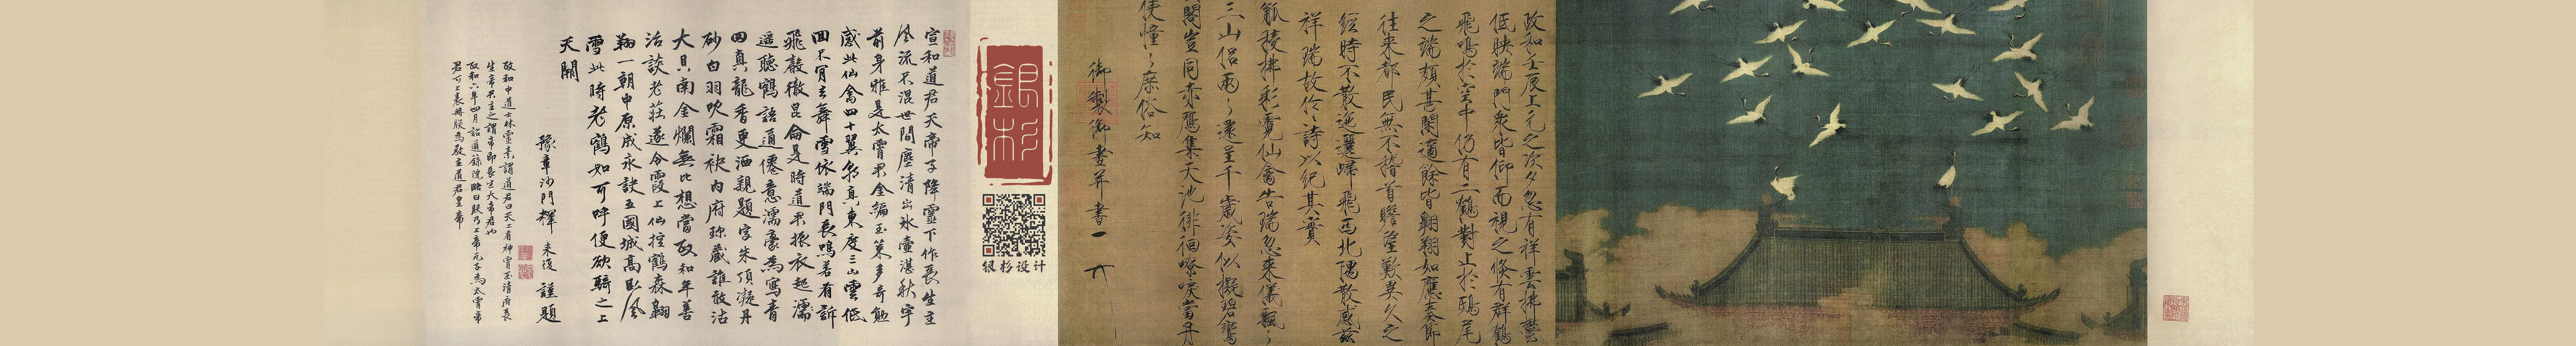 政和壬辰上元之次夕忽有祥雲拂鬱
低映端門衆皆仰而視之倏有群鶴
飛鳴於空中仍有二鶴對止於鴟尾
之端頗甚閑適餘皆翺翔如應奏節
往來都民無不稽首瞻望歎異久之
經時不散迤邐歸飛西北隅散感茲
祥瑞故作詩以紀其實
觚稜拂彩霓仙禽告瑞忽來儀飄〻
三山侶兩〻還呈千歲姿似擬碧鸞
閣豈同赤鴈集天池徘徊嘹唳當丹
使憧〻庶俗知
御製御畫并書
銀杉
银杉设计
宣和道君天帝子降靈下作長生主
風流不混世間塵清出冰壺湛秋宇
前身雅是太霄君金編玉策多奇勳
感此仙禽四十翼朝真東度三山雲低
回不肯去舞雪依端門長鳴若有訴
飛聲徹昆侖是時道君振衣起濡
遥聽鶴語道僊意濡毫爲寫青
田真龍香更洒親題字朱頂凝丹
砂白羽吹霜袂内府珎藏誰敢沽
大貝南金爛無比想當政和年善
治談老莊遂令霞上仙控鶴森翺
翔一朝中原成永訣五國城高卧風
雪此時老鶴如可呼便欲騎之上
天闕
豫章沙門釋 來復 謹題
政和中道士林靈素謂道君曰天上有神霄玉清府長
生帝君主之謂帝即長生大帝君也
政和六年四月詔道録院略曰朕乃上帝元子爲太霄帝
君可上表册朕爲教主道君皇帝